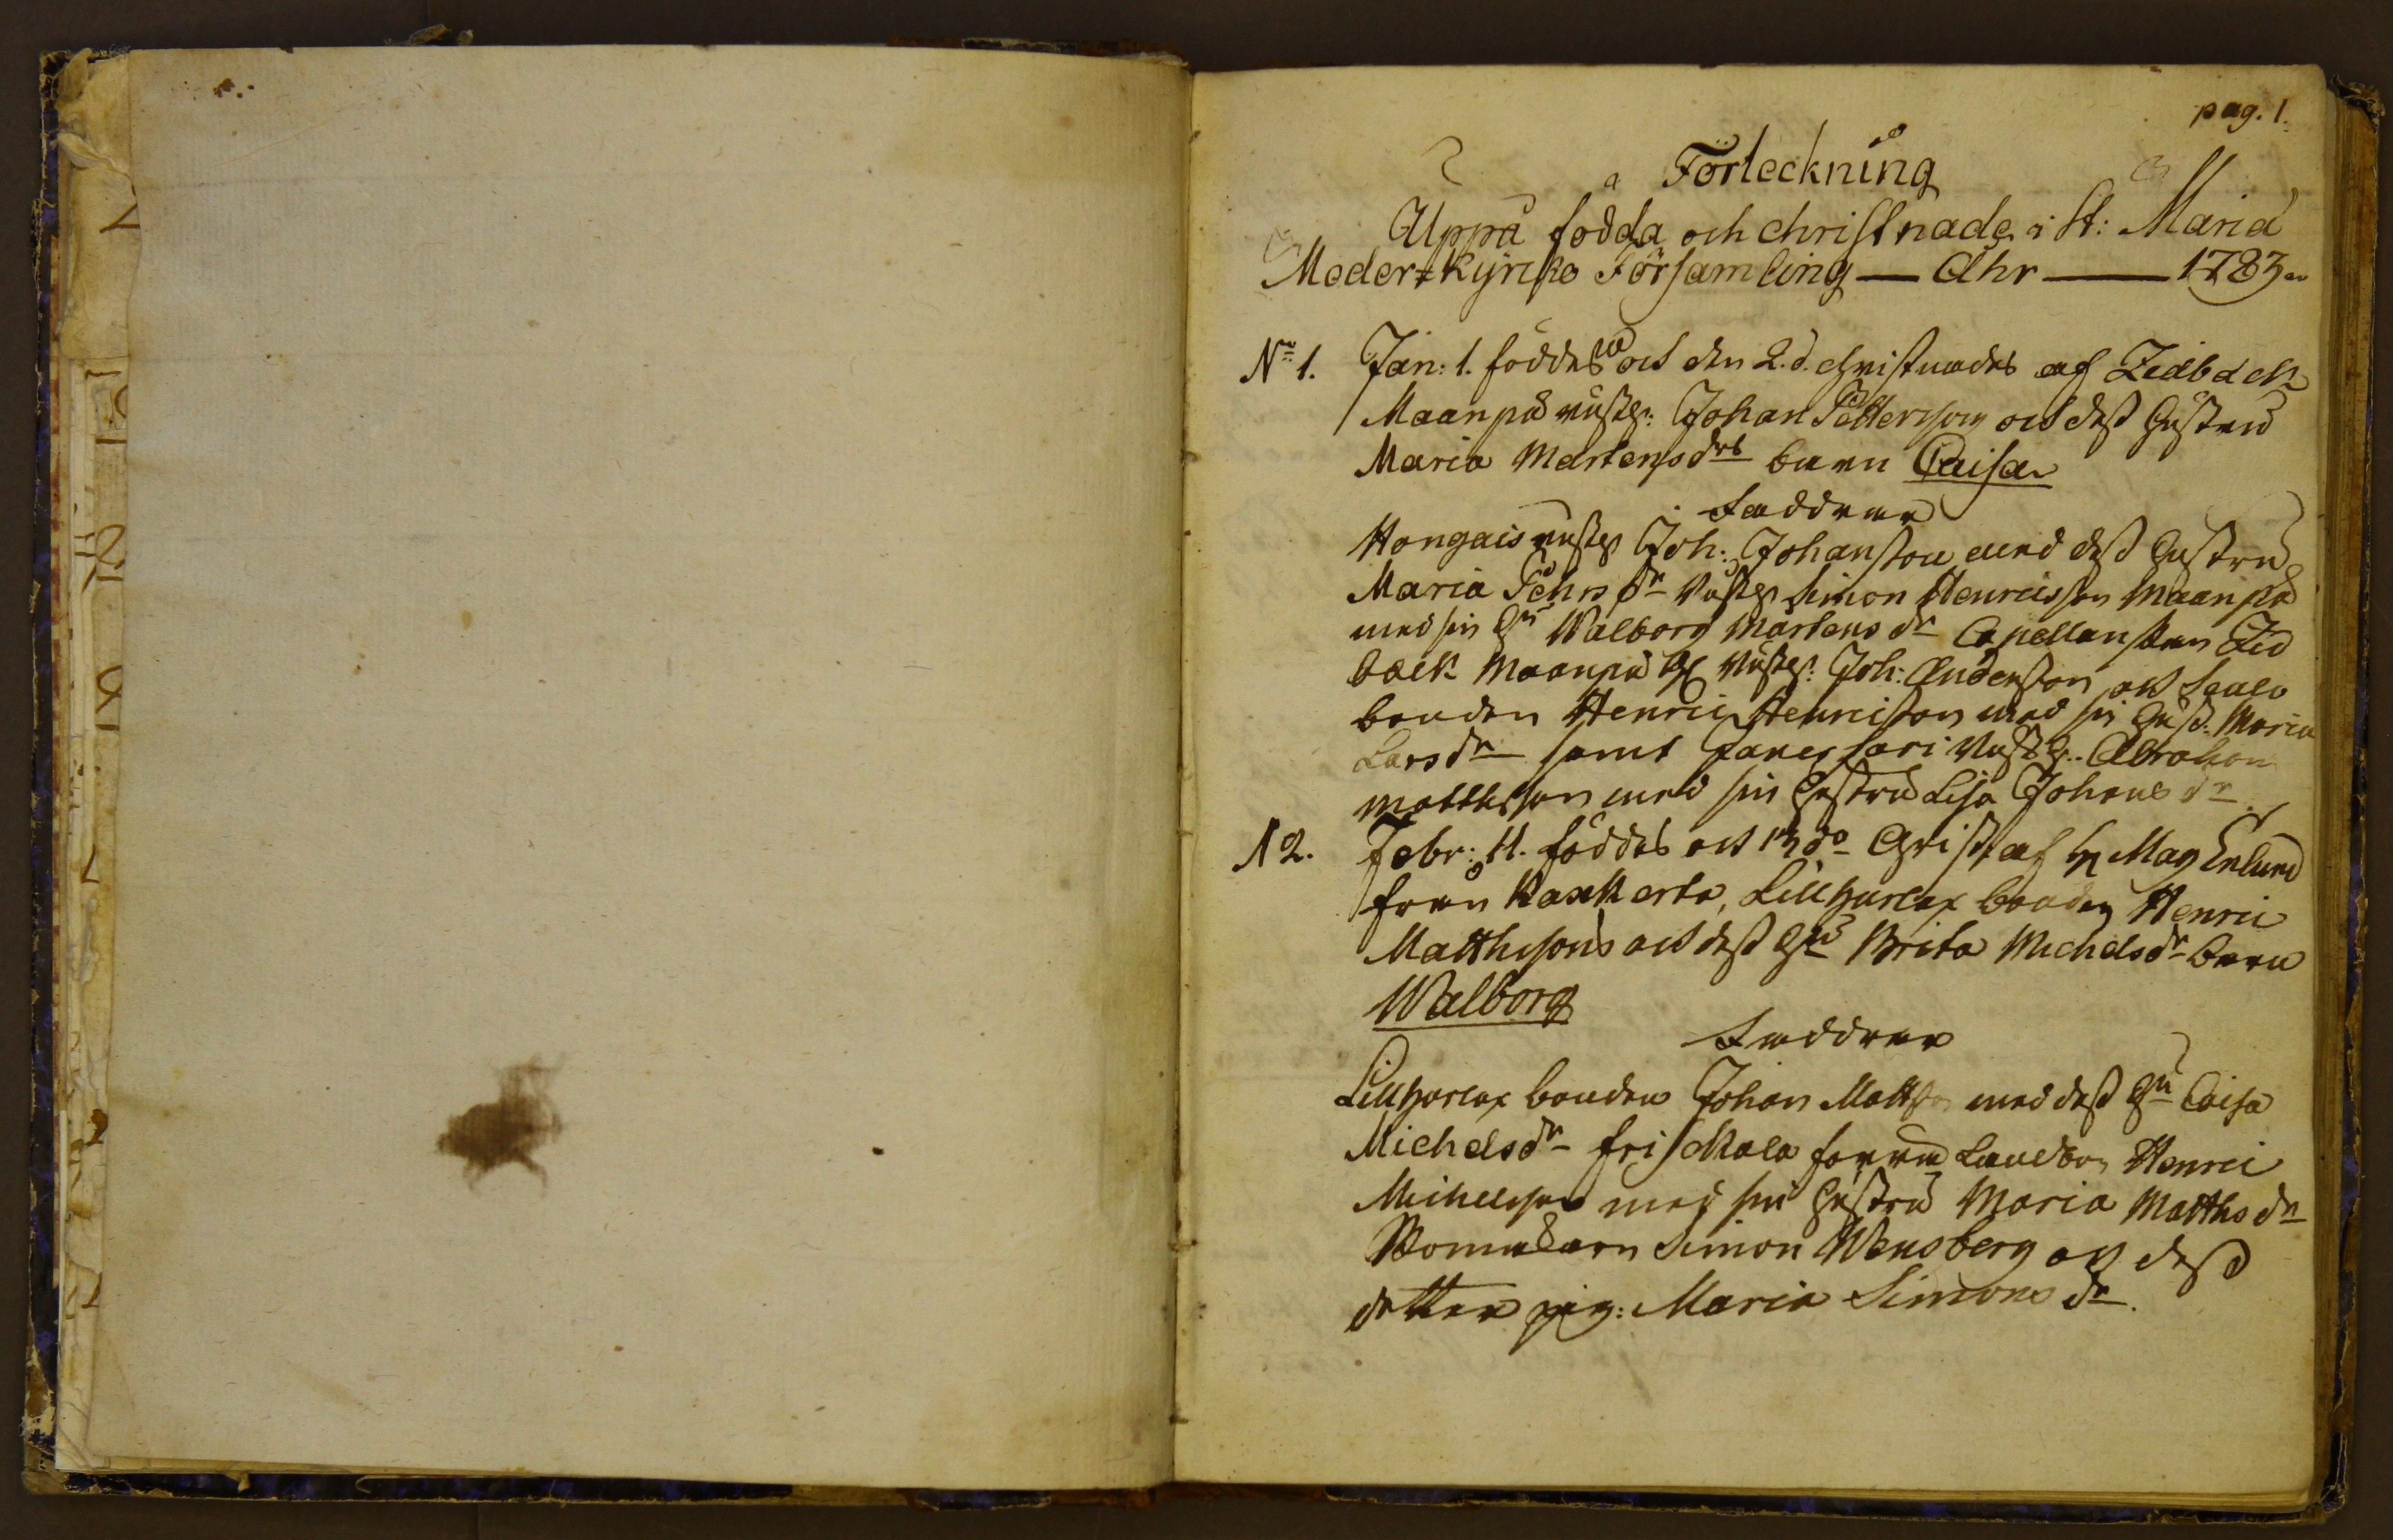 pag. 1.
Förteckning
Uppå födda och christnade i St: Mariæ
Moder-Kyrko Församling — Åhr — 1783
No 1. Jan: 1. föddes och den 2. d. christnades af Zidbäck
Maanpä rustg: Johan Pettersson och dess hustru
Maria Mårtensdrs barn Caisa
Faddrar
Hongais rustg Joh: Johansson med dess hustru
Maria Pehrs dr Rustg Simon Henricsson Maanpä
med sin Hu Walborg Mårtens dr Capellanskan Zid
bäck Maanpä Rustg: Joh: Andersson och
bonden Henric Henricsson med sin hust: Maria
Lars dr samt Rustg: Abraham
Matthsson med sin hustru Lisa Johans dr
N 2. Febr: 11. föddes och 13 do Christ. af H Mag Enlund
från Kaxkerta, Lillharlax bonden Henric
Matthssons och dess Hu Brita Michels dr barn
Walborg
Faddrar
Lillharlax bonden Johan Mattss med dess Hu Caisa
Michels dr Friskala Landbon Henric
Michelsson med sin hustru Maria Matths dr
Simon Wensberg och dess
dotter pig: Maria Simons dr